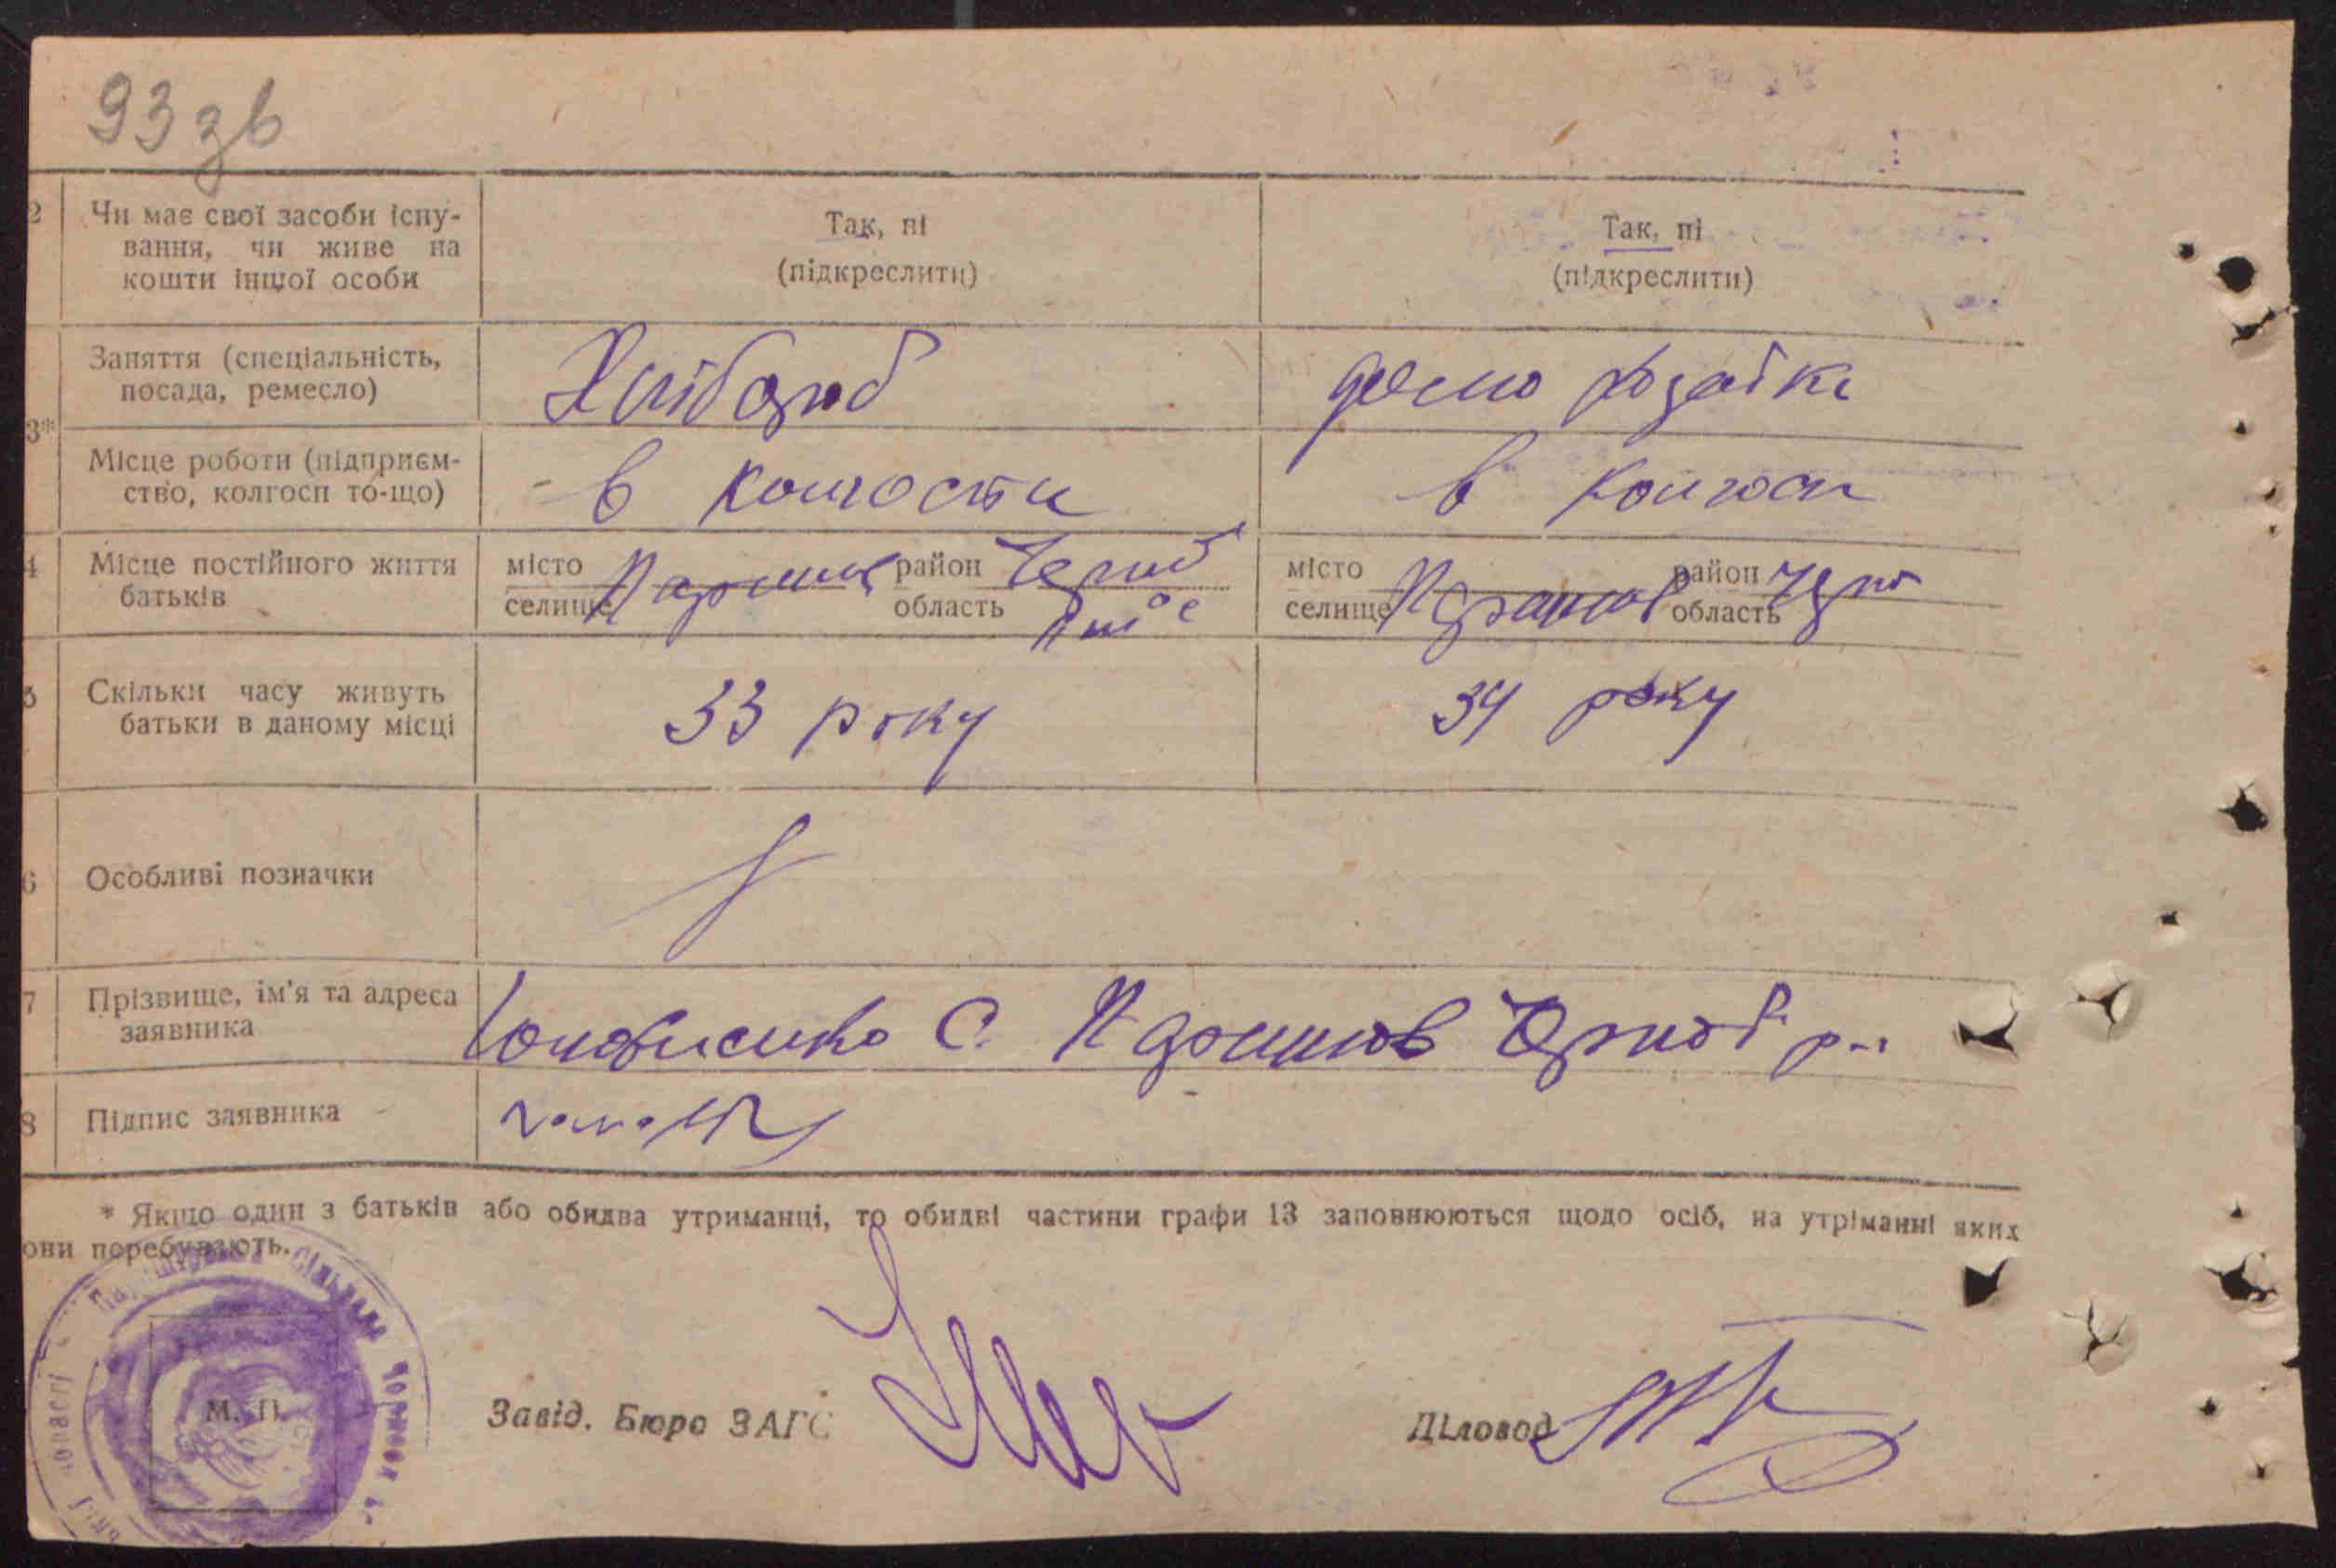 93 зв
2 Чи має свої засоби існу-
вання, чи живе на
кошти іншої особи
Так, ні
(підкреслити)
Так, ні
(підкреслити)
3*
Заняття (спеціальність,
посада, ремесло)
Хлібороб
домо хозяйка
Місце роботи (підприєм-
ство, колгосп то-що)
в колгоспи
в колгосп
4 Місце постійного життя
батьків
місто
селище
район
область
місто
селище
район
область
5 Скільки часу живуть
батьки в даному місці
33 року
34 року
6 Особливі позначки
7 Прізвище, ім'я та адреса
заявника
С.
8 Підпис заявника
* Якщо один з батьків або обидва утриманці, то обидві частини графи 13 заповнюються щодо осіб, на утріманні яких
они поребувають.
сільрада
М. П.
Завід. Бюро ЗАГС
Діловод